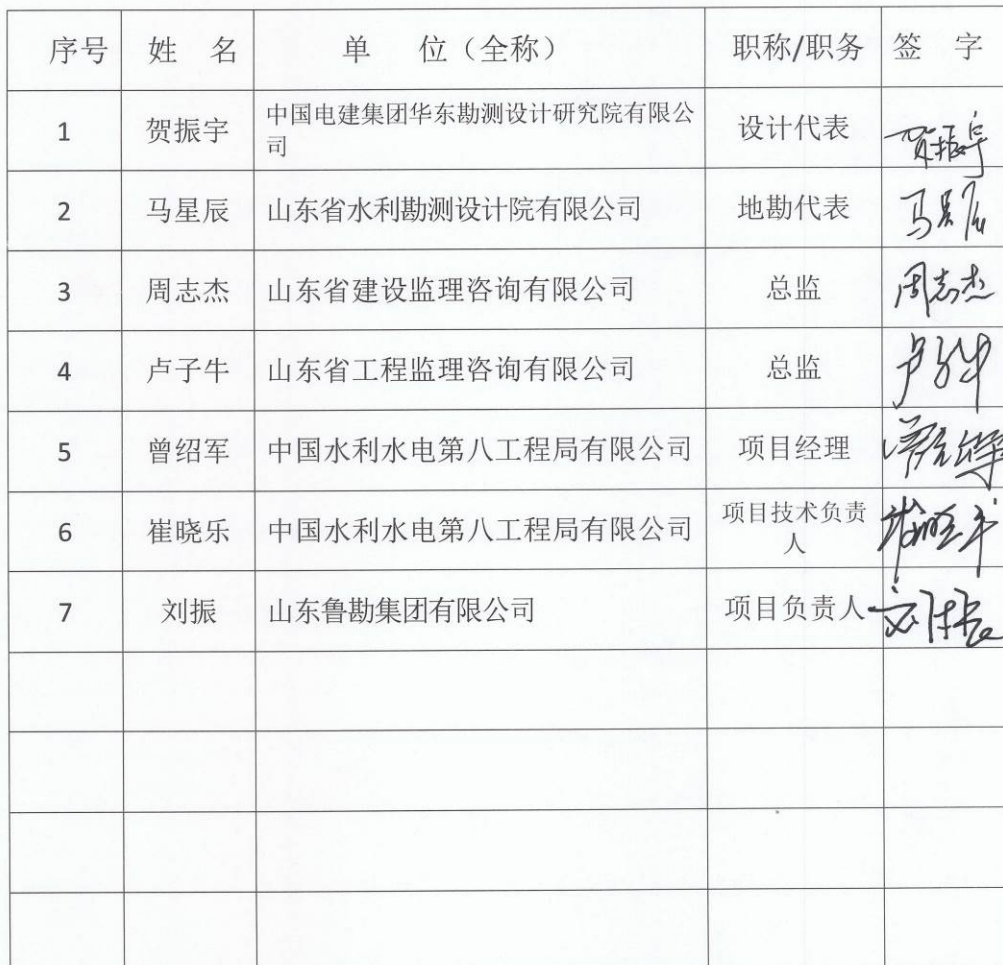 序号 姓 名 单 位（全称） 职称/职务 签 字
1 贺振宇 中国电建集团华东勘测设计研究院有限公
司 设计代表 贺振宇
2 马星辰 山东省水利勘测设计院有限公司 地勘代表 马星辰
3 周志杰 山东省建设监理咨询有限公司 总监 周志杰
4 卢子牛 山东省工程监理咨询有限公司 总监 卢子牛
5 曾绍军 中国水利水电第八工程局有限公司 项目经理 曾绍军
6 崔晓乐 中国水利水电第八工程局有限公司 项目技术负责
人
7 刘振 山东鲁勘集团有限公司 项目负责人 刘振